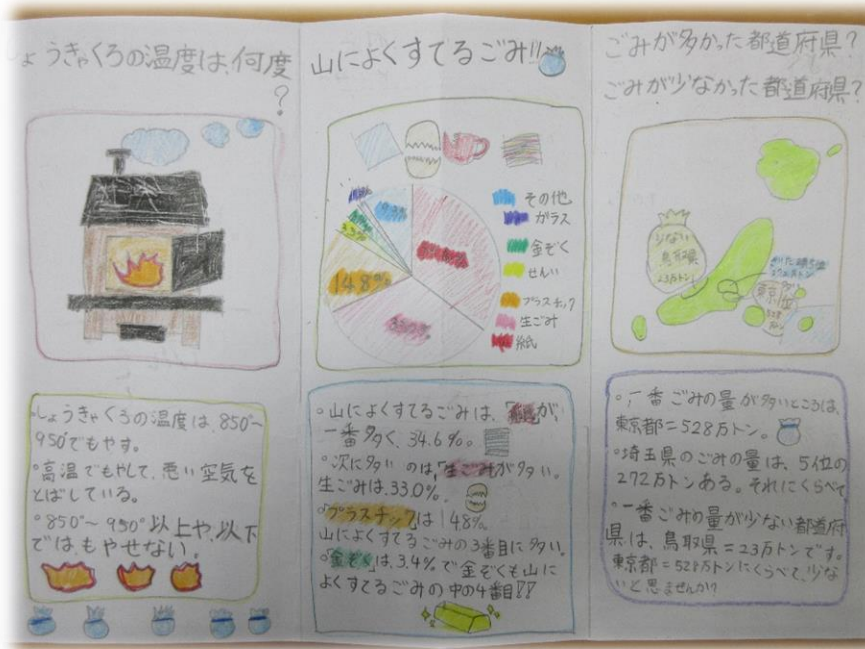 しょうきゃくろの温度は、何度
?
しょうきゃくろの温度は、850°〜
950°でもやす。
・高温でもやして、悪い空気を
とばしている。
°850°〜950°以上や、以下
では、もやせない。
山によくすてるごみ!!
その他
ガラス
金ぞく
せんい
プラスチック
生ごみ
紙
14.8%
°山によくすてるごみは、「紙」が、
一番多く、34.6%。
°次に多いのは、「生ごみ」が多い。
生ごみは、33.0%。
「プラスチック」は14.8%。
山によくすてるごみの3番目に多い。
°「金ぞく」は、3.4%で金ぞくも山に
よくすてるごみの中の4番目!!
ごみが多かった都道府県?
ごみが少なかった都道府県?
少ない
鳥取県
23万トン
東京
528
万トン
°一番ごみの量が多いところは、
東京都=528万トン。
°埼玉県のごみの量は、5位の
272万トンある。それにくらべて、
°一番ごみの量が少ない都道府
県は、鳥取県=23万トンです。
東京都=528万トンにくらべて、少な
いと思ませんか?